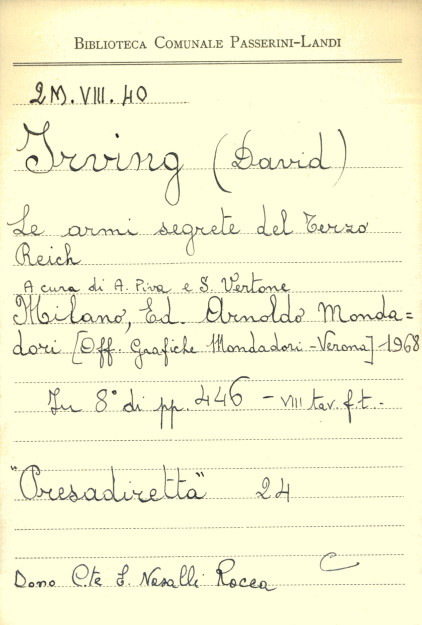 BIBLIOTECA COMUNALE PASSERINI-LANDI
2M.VIII.40
Irving (David)
Le armi segrete del Terzo
Reich
A cura di A. Piva e S. Vertone
Milano, Ed. Arnoldo Monda=
dori [Off. Grafiche Mondadori-Verona] 1968
In 8° di pp. 446 - VIII tav. f.t.-
"Presadiretta" 24
C
Dono C.te E. Nasalli Rocca